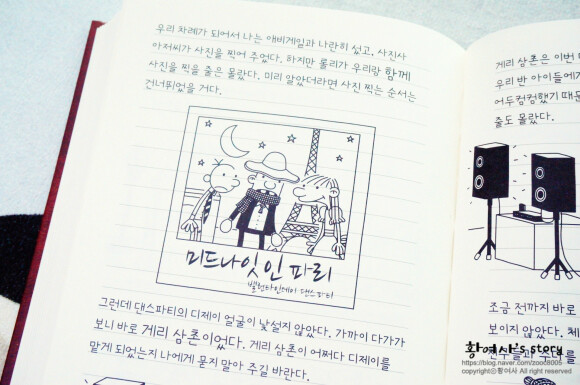 우리 차례가 되어서 나는 애비게일과 나란히 섰고, 사진사
아저씨가 사진을 찍어 주었다. 하지만 롤리가 우리랑 함께
사진을 찍을 줄은 몰랐다. 미리 알았더라면 사진 찍는 순서는
건너뛰었을 거다.
미드나잇 인 파리
밸런타인데이 댄스파티
그런데 댄스파티의 디제이 얼굴이 낯설지 않았다. 가까이 다가가
보니 바로 게리 삼촌이었다. 게리 삼촌이 어쩌다 디제이를
맡게 되었는지 나에게 묻지 말아 주길 바란다.
게리 삼촌은 이번
우리 반 아이들에게
어두컴컴했기 때문
줄도 몰랐다.
조금 전까지 바로
보이지 않았다. 체
황여사's story
https://blog.naver.com/zoo28005
copyrightⓒ황여사 All right reserved